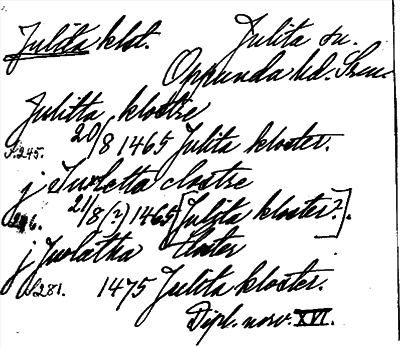 Julita klst. Julita sn.
Oppunda hd. Srm.
Julitta klostre
s. 245. 20/8 1465 Julita kloster.
j Jwletta clostre
21/8 (?) 1465 [Julita kloster?].
j Jwlatka kloster
s. 281. 1475 Julita kloster.
Dipl. norv. XVI.